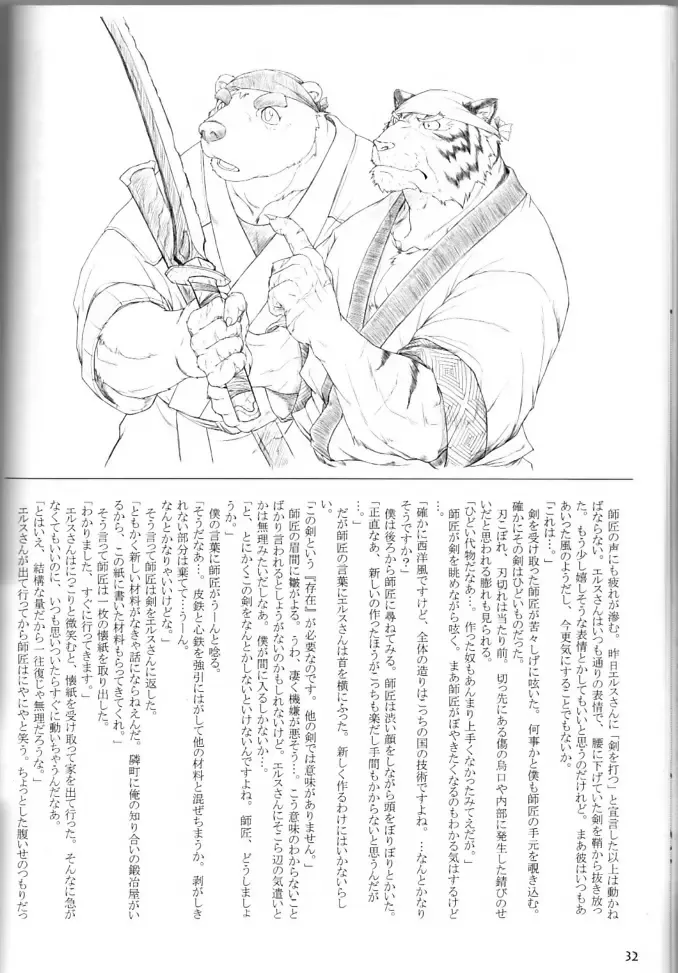 師匠の声にも疲れが滲む。昨日エルスさんに「剣を打つ」と宣言した以上は動かね
ばならない。エルスさんはいつも通りの表情で、腰に下げていた剣を鞘から抜き放っ
た。もう少し嬉しそうな表情とかしてもいいと思うのだけれど。まあ彼はいつもあ
あいった風のようだし、今更気にすることでもないか。
「これは…。」
剣を受け取った師匠が苦々しげに呟いた。何事かと僕も師匠の手元を覗き込む。
確かにその剣はひどいものだった。
刃こぼれ、刃切れは当たり前。切っ先にある傷の烏口や内部に発生した錆びのせ
いだと思われる膨れも見られる。
「ひどい代物だなあ…。作った奴もあんまり上手くなかったみてえだが。」
師匠が剣を眺めながら呟く。まあ師匠がぼやきたくなるのもわかる気はするけど
…。
「確かに西洋風ですけど、全体の造りはこっちの国の技術ですよね。…なんとかなり
そうですか？」
僕は後ろから師匠に尋ねてみる。師匠は渋い顔をしながら頭をぼりぼりとかいた。
「正直なあ、新しいの作ったほうがこっちも楽だし手間もかからないと思うんだが
…」
だが師匠の言葉にエルスさんは首を横にふった。新しく作るわけにはいかないらし
い。
「この剣という『存在』が必要なのです。他の剣では意味がありません。」
師匠の眉間に皺がよる。うわ、凄く機嫌が悪そう…。こう意味のわからないこと
ばかり言われるとしょうがないのかもしれないけど。エルスさんにそこら辺の気遣いと
かは無理みたいだしなあ。僕が間に入るしかないか…。
「と、とにかくこの剣をなんとかしないといけないんですよね。師匠、どうしましょ
うか。」
僕の言葉に師匠がうーんと唸る。
「そうだなあ…。皮鉄と心鉄を強引にはがして他の材料と混ぜちまうか。剥がしき
れない部分は棄てて…うーん。
なんとかなりゃいいけどな。」
そう言って師匠は剣をエルスさんに返した。
「ともかく新しい材料がなきゃ話にならねえんだ。隣町に俺の知り合いの鍛冶屋がい
るから、この紙に書いた材料もらってきてくれ。」
そう言って師匠は一枚の懐紙を取り出した。
「わかりました、すぐに行ってきます。」
エルスさんはにっこりと微笑むと、懐紙を受け取って家を出て行った。そんなに急が
なくてもいいのに、いつも思いついたらすぐに動いちゃうんだなあ。
「とはいえ、結構な量だから一往復じゃ無理だろうな。」
エルスさんが出て行ってから師匠はにやにやと笑う。ちょっとした腹いせのつもりだっ
32